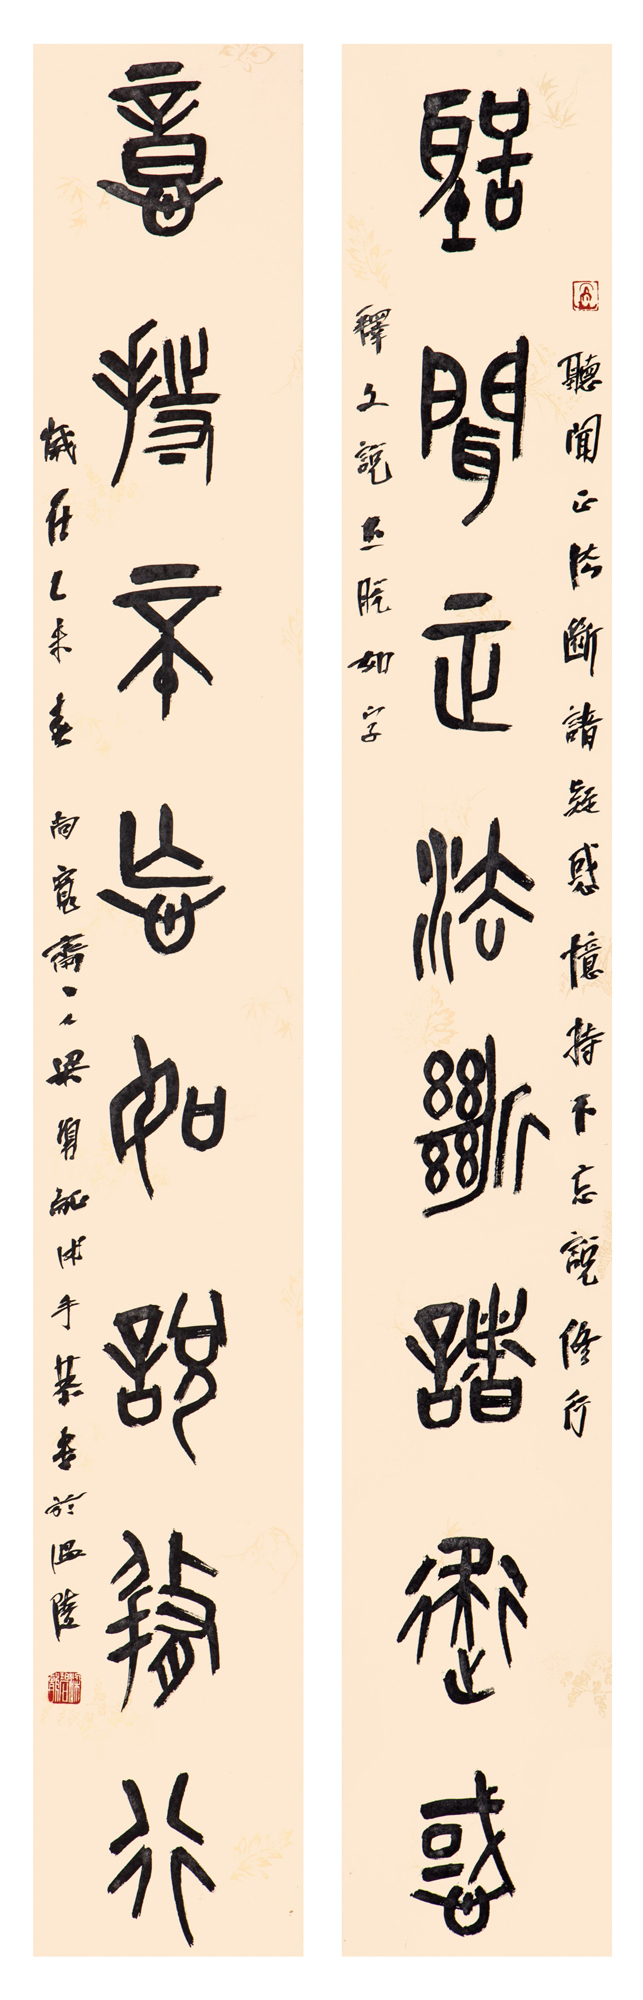 聽聞正法斷諸疑惑憶持不忘說修行
聽聞正法斷諸疑惑
釋文說上脫如字
憶持不忘如說修行
歲在乙未春 尚寬齋主人梁沐手恭書於溫陵